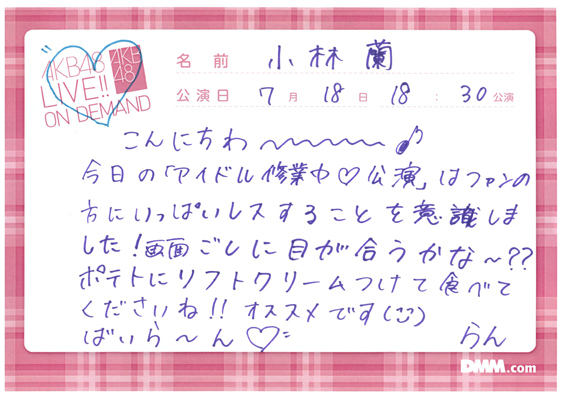 AKB48 LIVE!! ON DEMAND
AKB48
名前 小林蘭
公演日 7月18日 18:30公演
こんにちわ〜〜〜〜♪
今日の「アイドル修業中♡公演」はファンの
方にいっぱいレスすることを意識しま
した!画面ごしに目が合うかな〜??
ポテトにソフトクリームつけて食べて
くださいね!!オススメです(ﾆ)
ばいら〜ん♡
らん
DMM.com